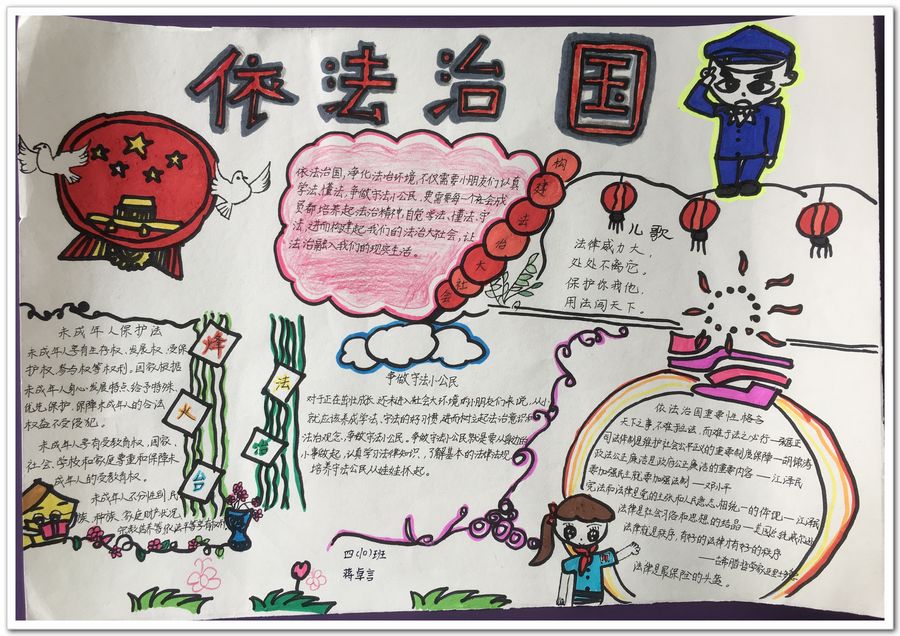 依法治国
依法治国,净化法治环境,不仅需要小朋友们认真
学法、懂法、争做守法小公民,更需要每一个社会成
员都培养起法治精神,自觉学法、懂法、守
法,进而构建起我们的法治大社会,让
法治融入我们的现实生活。
构
建
法
治
大
社
会
儿歌
法律威力大,
处处不离它。
保护你我他,
用法闯天下。
未成年人保护法
未成年人享有生存权、发展权、受保
护权、参与权等权利,国家根据
未成年人身心发展特点给予特殊、
优先保护,保障未成年人的合法
权益不受侵犯。
未成年人享有受教育权,国家、
社会、学校和家庭尊重和保障未
成年人的受教育权。
未成年人不分性别、民
族、种族、家庭财产状况、
宗教信仰等依法平等享有权利
烽
火
台
法
治
争做守法小公民
对于正在茁壮成长,还未进入社会大环境的小朋友们来说,从小
就应该养成学法、守法的好习惯,进而树立起法治意识和
法治观念,争做守法小公民。争做守法小公民就是要从身边的
小事做起,认真学习法律知识,了解基本的法律法规
培养守法公民从娃娃抓起。
依法治国重要性格言
天下之事,不难于立法,而难于法之必行—张居正
司法体制是维护社会公平正义的重要制度保障—胡锦涛
政法公正廉洁是政府公正廉洁的重要内容——江泽民
要加强民主就要加强法制——邓小平
宪法和法律是党的主张和人民意志相统一的体现—江泽民
法律是社会习俗和思想的结晶——美国总统威尔逊
法律就是秩序,有好的法律才有好的秩序
——古希腊哲学家亚里士多德
法律是最保险的头盔。
四(10)班
蒋卓言